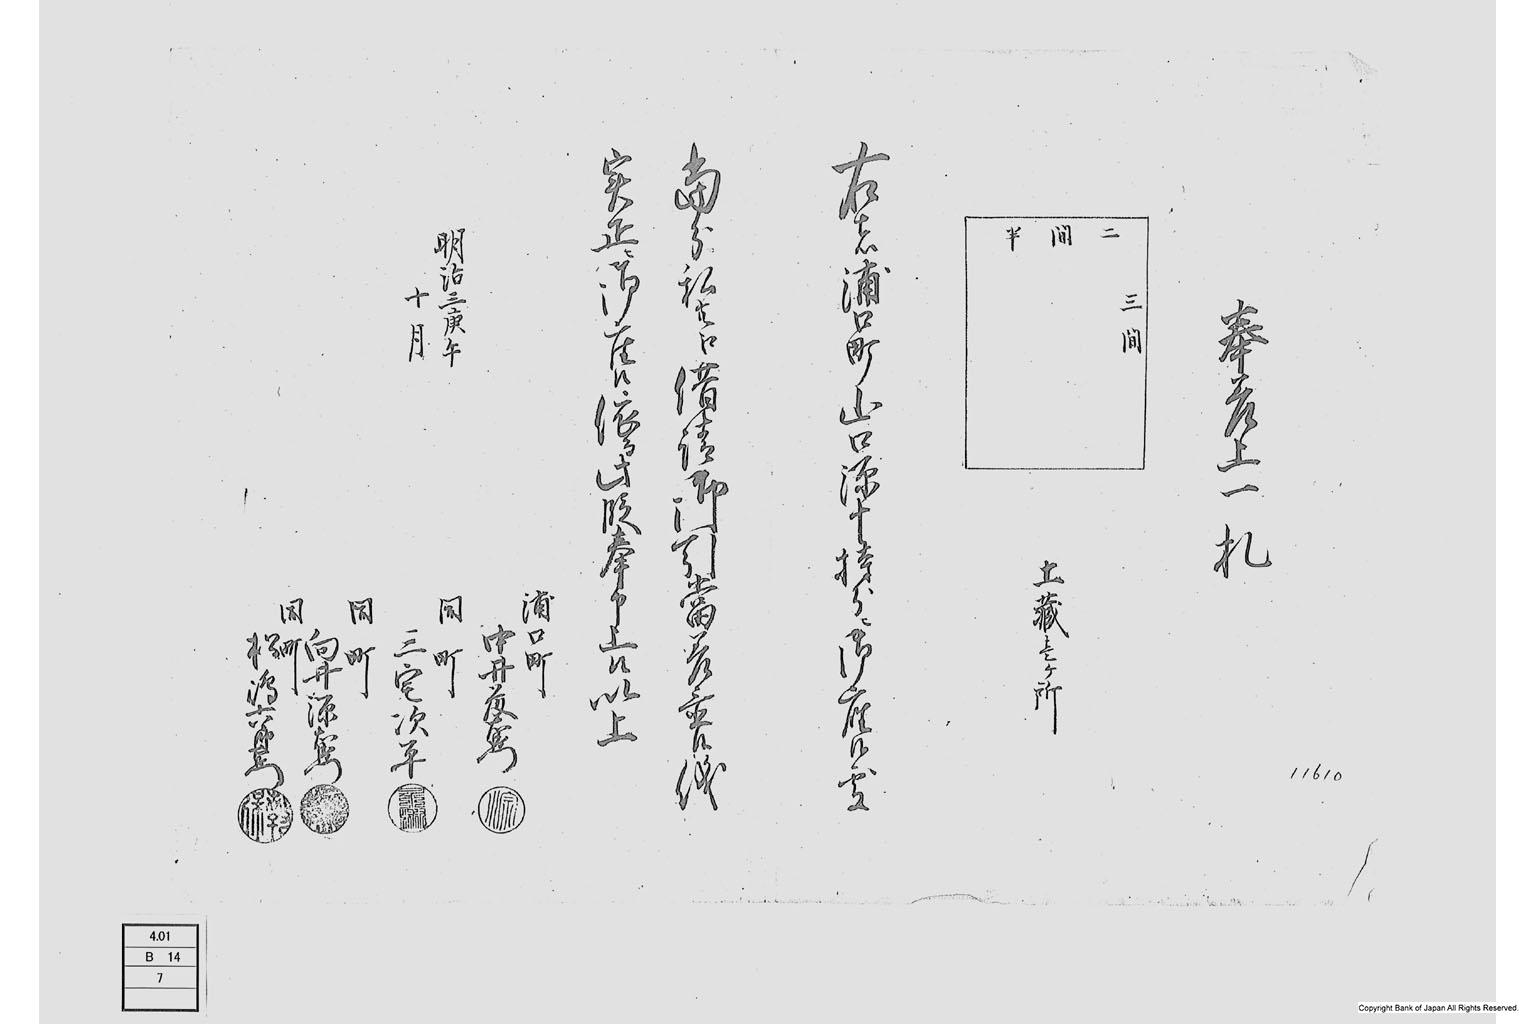 奉差上一札
三間
二間半
土蔵壱ケ所
右者浦口町山口源十持分ニ御座候処
当分私共江借請御引當差上候儀
実正ニ御座候依而此段奉申上候以上
明治三庚午
十月
浦口町
同町
三宅次平
同町
向井源
同町
松嶋六
11610
4.01
B 14
7
Copyright Bank of Japan All Rights Reserved.